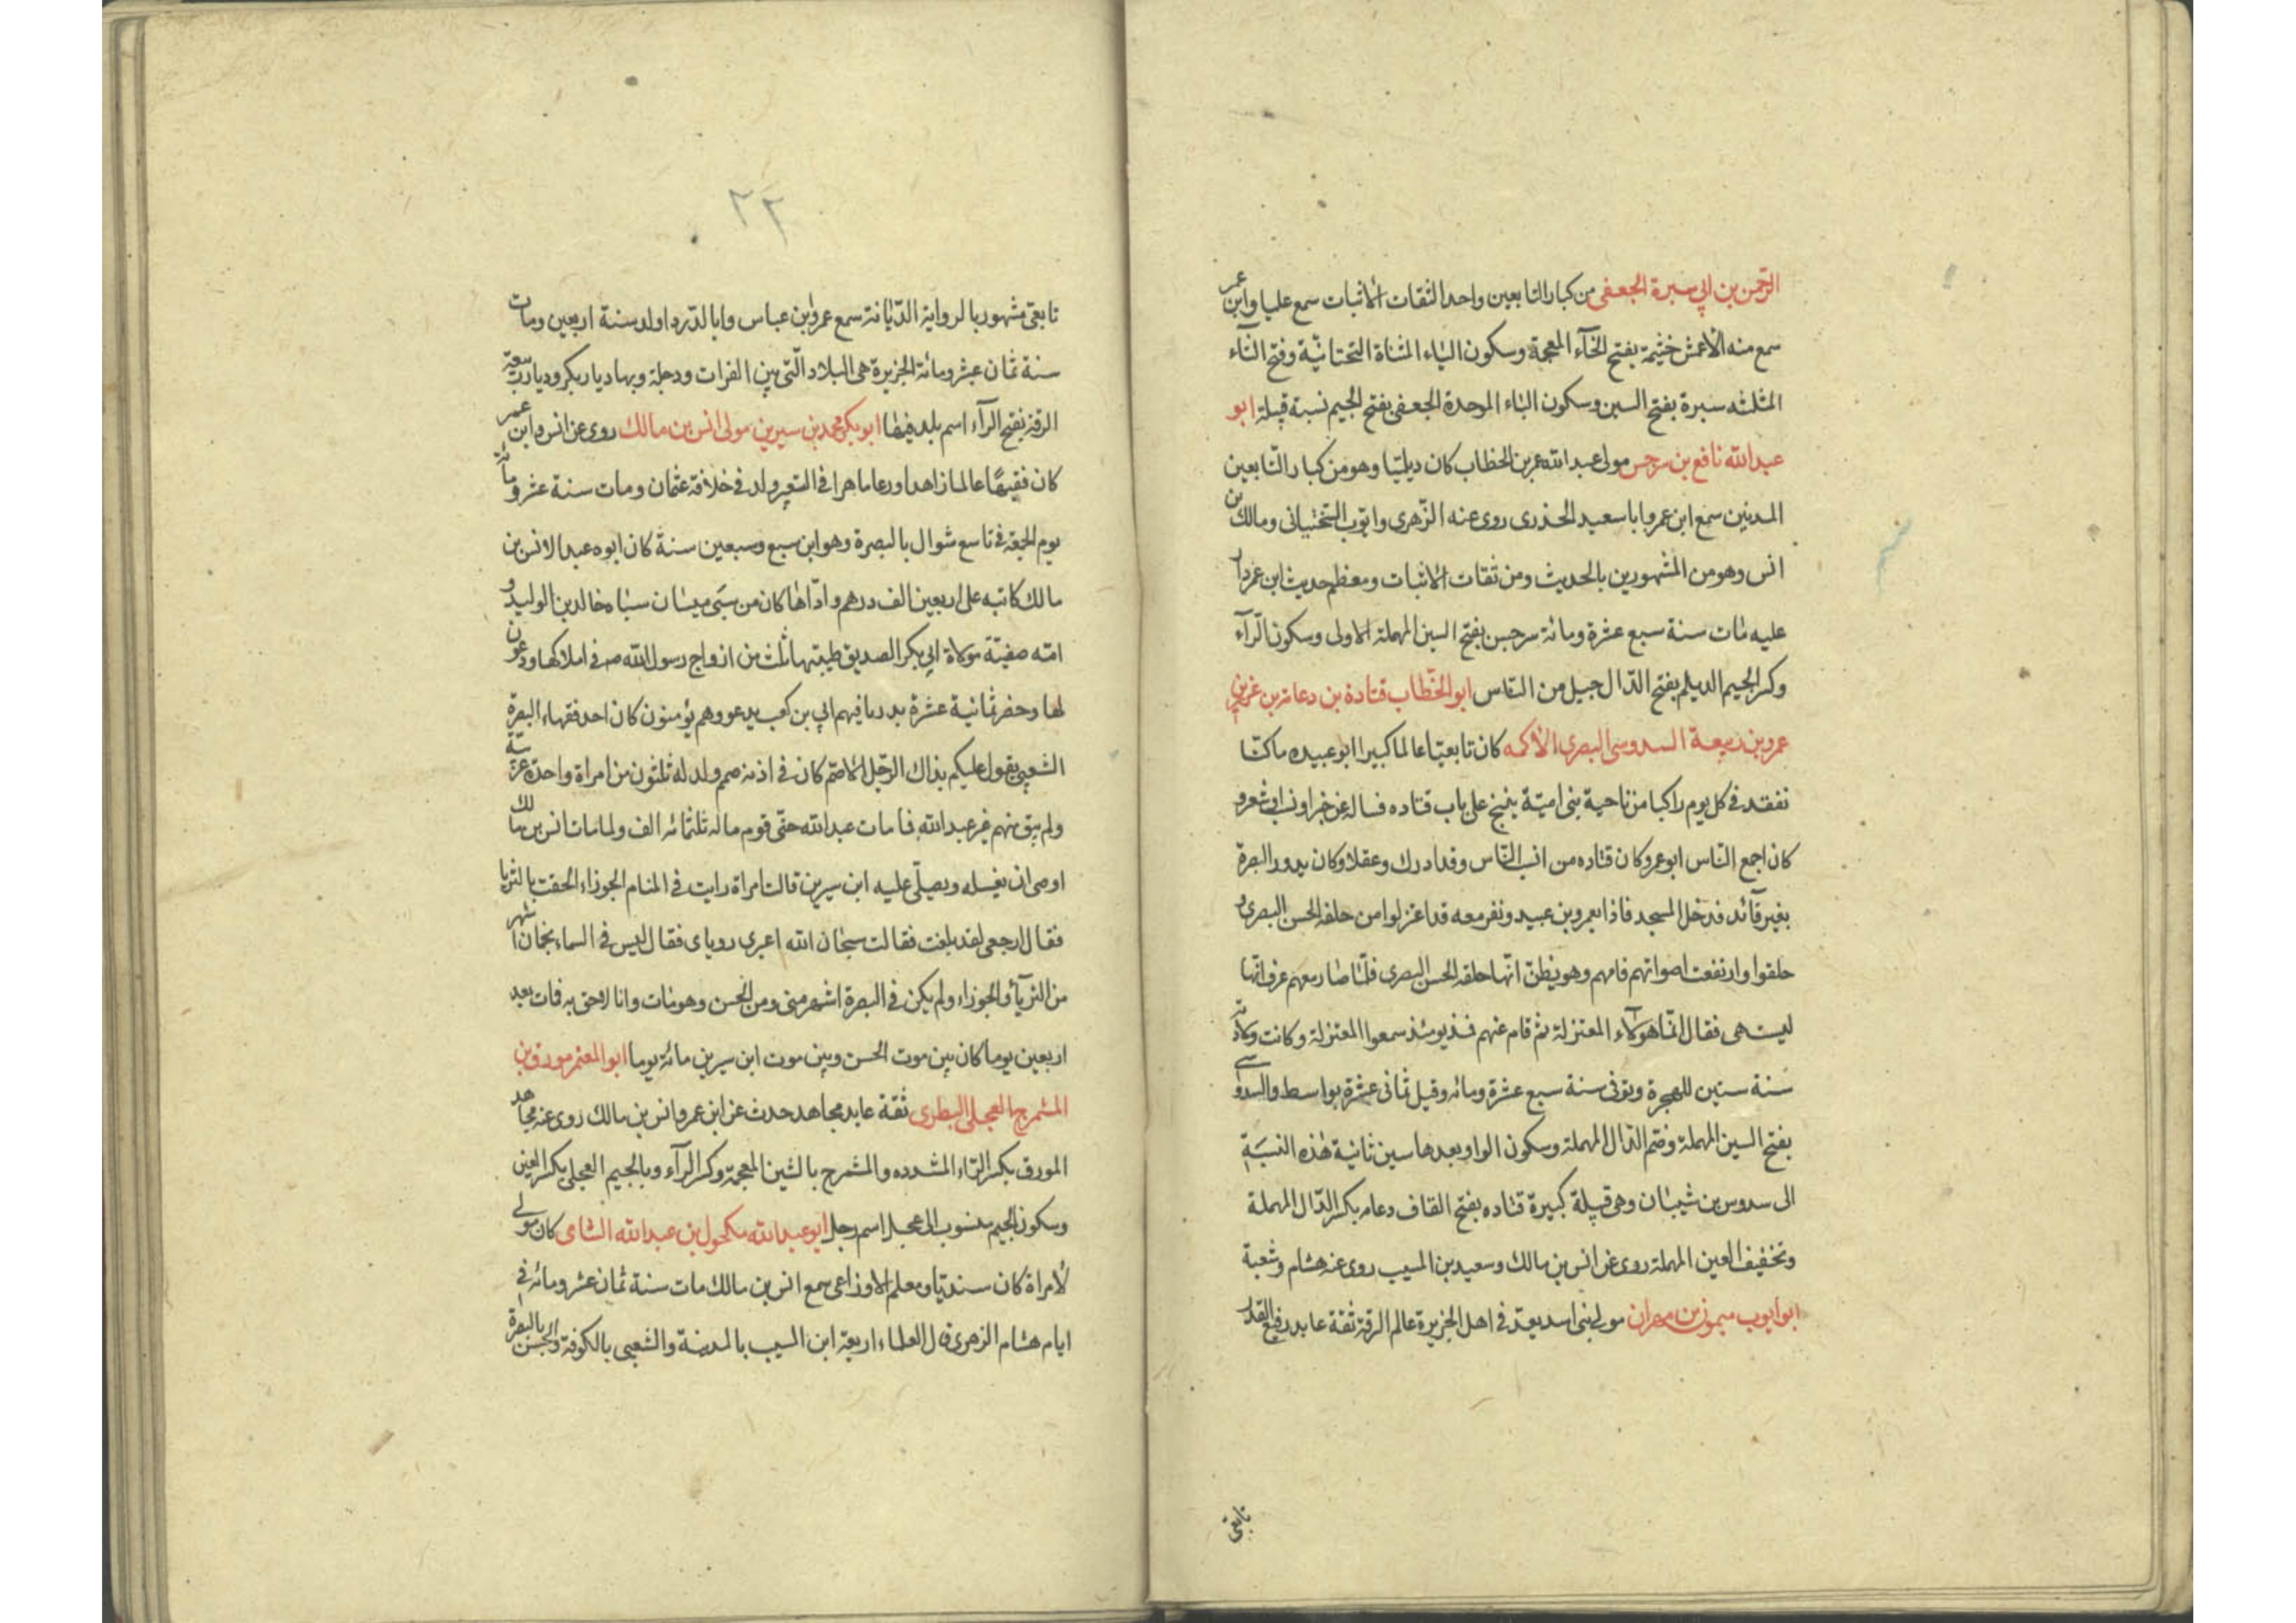 الرحمن بن ابي سبرة الجعفى من كبار التابعين واحد الثقات الاثبات سمع عليا وابن عمر
سمع منه الاعمش خيثمة بفتح الخآء المعجمة وسكون الياء المثناة التحتانية وفتح الثاء
المثلثه سبرة بفتح السين وسكون الباء الموحدة الجعفى بفتح الجيم نسبة قبيلة ابو
عبد الله نافع بن سرجس مولى عبد الله عمر بن الخطاب كان ديلميا وهو من كبار التابعين
المدنيين سمع ابن عمر وابا سعيد الخذرى روى عنه الزهرى وايوب السختيانى ومالك بن
انس وهو من المشهورين بالحديث ومن ثقات الاثبات ومعظم حديث ابن عمر دار
عليه مات سنة سبع عشرة ومائة سرجس بفتح السين المهملة الاولى وسكون الرآء
وكسر الجيم الديلم بفتح الدال جيل من الناس ابو الخطاب قتادة بن دعامة بن عزيز بن
عمرو بن ربيعة السدوسى البصرى الأكمه كان تابعيا عالما كبيرا ابو عبيده ما كنا
نفقد فى كل يوم راكبا من ناحية بنى امية ينيخ على باب قتاده فساله عن خبر او نسب او شعر و
كان اجمع الناس ابو عمر وكان قتاده من انسب الناس وقد ادرك وعقلا وكان يدور البصرة
بغير قآئد فدخل المسجد فاذا بعمرو بن عبيد ونفر معه قد اعتزلوا من حلقه الحسن البصرى و
حلقوا وارتفعت اصواتهم فامهم وهو يظن انها حلقه الحسن البصرى فلما صار معهم عرف انها
ليست هى فقال انما هؤلآء المعتزلة ثم قام عنهم فمذ يومئذ سمعوا المعتزلة وكانت ولادته
سنة ستين للهجرة وتوفى سنة سبع عشرة ومائه وقيل ثمانى عشرة بواسط والسدوسى
بفتح السين المهملة وضم الدال المهملة وسكون الواو بعدها سين ثانية هذه النسبة
الى سدوس بن شيبان وهى قبيلة كبيرة قتاده بفتح القاف دعامه بكسر الدال المهملة
وتخفيف العين المهملة روى عن انس بن مالك وسعيد بن المسيب روى عنه هشام وشعبة
ابو ايوب ميمون بن مهران مولى بنى اسد يعد فى اهل الجزيرة عالم الرقة ثقة عابد رفيع القدر
تابعى
٢٢
تابعى مشهور بالرواية الديانة سمع عمر وابن عباس وابا الدردا ولد سنة اربعين ومات
سنة ثمان عشر ومائة الجزيرة هى البلاد التى بين الفرات ودجلة وبها ديار بكر وديار ربيعة
الرقة بفتح الرآء اسم بلد فيها ابو بكر محمد بن سيرين مولى انس بن مالك روى عن انس وابن عمر
كان فقيها عالما زاهدا ورعا ماهرا فى التعبير ولد فى خلافة عثمان ومات سنة عشر ومائة
يوم الجمعة فى تاسع شوال بالبصرة وهو ابن سبع وسبعين سنة كان ابوه عبدا لانس بن
مالك كاتبه على اربعين الف درهم واداها كان من سبى ميسان سباه خالد بن الوليد و
امه صفية مولاة ابي بكر الصديق طيبتها ثلث من ازواج رسول الله ص فى املاكها ودعون
لها وحضر ثمانية عشرة بدريا فيهم ابي بن كعب يدعو وهم يؤمنون كان احد فقهاء البصرة
الشعبي يقول عليكم بذاك الرجل الاصم كان فى اذنه صمم ولد له ثلثون من امراة واحدة عربية
ولم يبق منهم غير عبد الله فما مات عبد الله حتى قوم ماله ثلثمائه الف ولما مات انس بن مالك
اوصى ان يغسله ويصلى عليه ابن سيرين قالت امراة رايت فى المنام الجوزاء الحقت بالثريا
فقال ارجعى لقد بلغت فقالت سبحان الله اعبرى روياى فقال ليس فى السماء نجمان اشهر
من الثريا والجوزاء ولم يكن فى البصرة اشهر منى ومن الحسن وهو مات وانا لاحق به فمات بعد
اربعين يوما كان بين موت الحسن وبين موت ابن سيرين مائة يوما ابو المعتمر مورق بن
المشمرج العجلى البطرى ثقة عابد مجاهد حدث عن ابن عمر وانس بن مالك روى عنه مجاهد
المورق بكسر الراء المشدده والمشمرج بالشين المعجمة وكسر الرآء وبالجيم العجلى بكسر العين
وسكون الجيم منسوب الى عجل اسم رجل ابو عبد الله مكحول بن عبد الله الشامى كان مولى
لأمراة كان سنديا ومعلم الاوزاعى سمع انس بن مالك مات سنة ثمان عشر ومائه فى
ايام هشام الزهرى قال العلماء اربعة ابن المسيب بالمدينة والشعبى بالكوفة والحسن بالبصرة